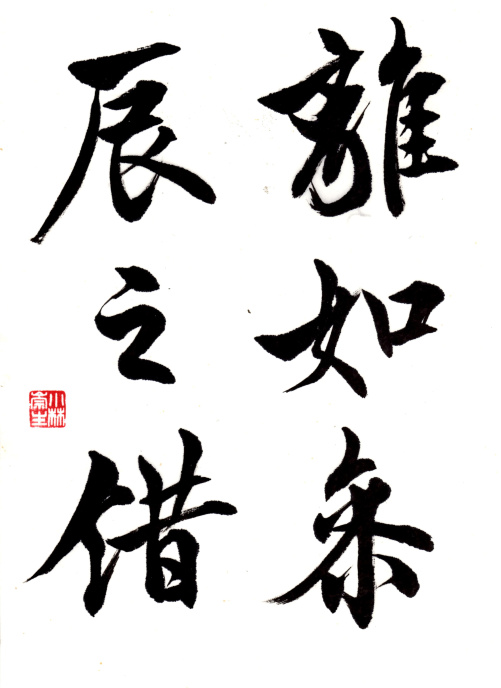 離如參
辰之錯
小林
崇生